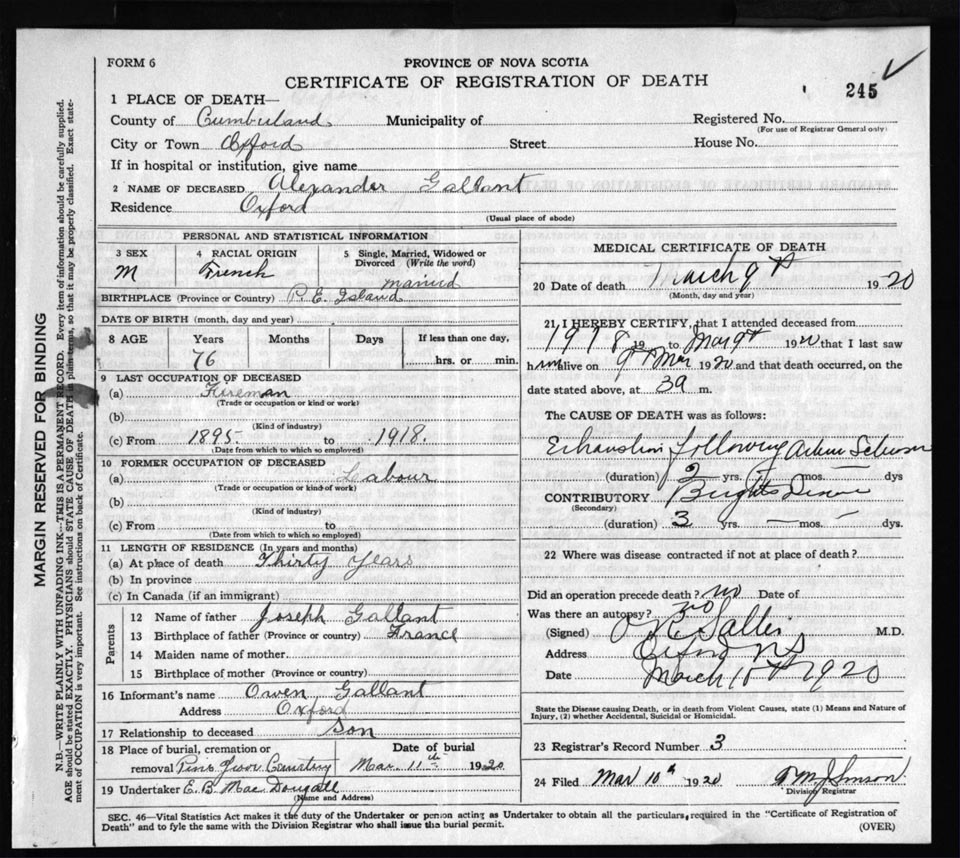 FORM 6
PROVINCE OF NOVA SCOTIA
CERTIFICATE OF REGISTRATION OF DEATH
245
1 PLACE OF DEATH—
County of Cumberland Municipality of Registered No.
(For use of Registrar General only)
City or Town Oxford Street House No.
If in hospital or institution, give name
2 NAME OF DECEASED Alexander Gallant
Residence Oxford
(Usual place of abode)
PERSONAL AND STATISTICAL INFORMATION
3 SEX
M
4 RACIAL ORIGIN
French
5 Single, Married, Widowed or
Divorced (Write the word)
married
BIRTHPLACE (Province or Country) P. E. Island
DATE OF BIRTH (month, day and year)
8 AGE Years Months Days If less than one day,
76 hrs. or min.
9 LAST OCCUPATION OF DECEASED
(a) Fireman
(Trade or occupation or kind or work)
(b)
(Kind of industry)
(c) From 1895 to 1918.
(Date from which to which so employed)
10 FORMER OCCUPATION OF DECEASED
(a) Labour
(Trade or occupation or kind of work)
(b)
(Kind of industry)
(c) From to
(Date from which to which so employed)
11 LENGTH OF RESIDENCE (In years and months)
(a) At place of death Thirty Years
(b) In province
(c) In Canada (if an immigrant)
Parents
12 Name of father Joseph Gallant
13 Birthplace of father (Province or country) France
14 Maiden name of mother
15 Birthplace of mother (Province or country)
16 Informant's name Owen Gallant
Address Oxford
17 Relationship to deceased Son
18 Place of burial, cremation or Date of burial
removal Pine Cemetery Mar. 11th 1920
19 Undertaker E. B. MacDougall
(Name and Address)
MEDICAL CERTIFICATE OF DEATH
20 Date of death March 9th 1920
(Month, day and year)
21 I HEREBY CERTIFY, that I attended deceased from
1918 19 to Mar 9th 1920 that I last saw
him alive on 9th Mar 1920 and that death occurred, on the
date stated above, at m.
The CAUSE OF DEATH was as follows:
Exhaustion following
(duration) 2 yrs. — mos. days
CONTRIBUTORY Brights Disease
(Secondary)
(duration) 3 yrs. — mos. — dys.
22 Where was disease contracted if not at place of death?
Did an operation precede death? no Date of
Was there an autopsy? no
(Signed) M.D.
Address Oxford NS
Date March 10th 1920
State the Disease causing Death, or in death from Violent Causes, state (1) Means and Nature of
Injury, (2) whether Accidental, Suicidal or Homicidal.
23 Registrar's Record Number 3
24 Filed Mar 10th 1920
Division Registrar
SEC. 46—Vital Statistics Act makes it the duty of the Undertaker or person acting as Undertaker to obtain all the particulars, required in the "Certificate of Registration of
Death" and to fyle the same with the Division Registrar who shall issue the burial permit.
(OVER)
MARGIN RESERVED FOR BINDING
N.B.—WRITE PLAINLY WITH UNFADING INK—THIS IS A PERMANENT RECORD. Every item of information should be carefully supplied.
AGE should be stated EXACTLY. PHYSICIANS should STATE CAUSE OF DEATH in plain terms, so that it may be properly classified. Exact state-
ment of OCCUPATION is very important. See instructions on back of Certificate.